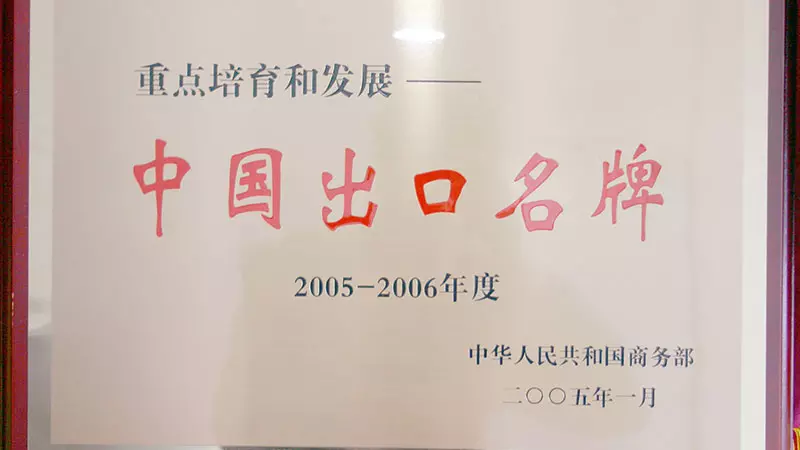 重点培育和发展——
中国出口名牌
2005-2006年度
中华人民共和国商务部
二〇〇五年一月